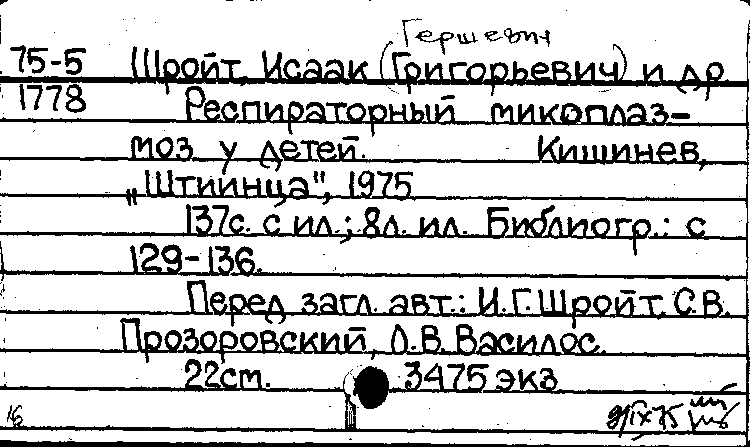 Гершевич
75-5 Шройт, Исаак (Григорьевич) и др
1778 Респираторный микоплаз-
моз у детей. Кишинев,
„Штиинца", 1975
137с. с ил.; 8л. ил. Библиогр.: с
129-136.
Перед загл. авт.: И.Г.Шройт, С.В.
Прозоровский, Л.В.Василос.
22см. 3475 экз
16